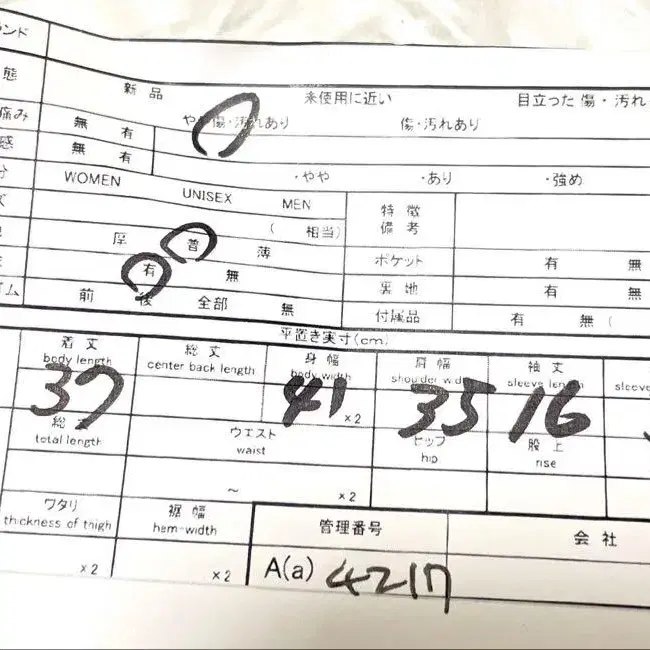 ンド
態 新品 未使用に近い 目立った傷・汚れ
痛み 無 有 やや傷・汚れあり 傷・汚れあり
感 無 有 ・やや ・あり ・強め
WOMEN UNISEX MEN 特徴
備考
( 相当)
厚 普 薄 ポケット 有 無
有 無 裏地 有 無
ゴム 前 後 全部 無 付属品 有 無 (
平置き実寸(cm)
着丈 総丈 身幅 肩幅 袖丈
body length center back length body width shoulder wid sleeve length sleeve
37 41 ×2 35 16
総 ウエスト ヒップ 股上
total length waist hip rise
~ ×2
ワタリ 裾幅 管理番号 会社
thickness of thigh hem-width
×2 ×2 A(a) 4217